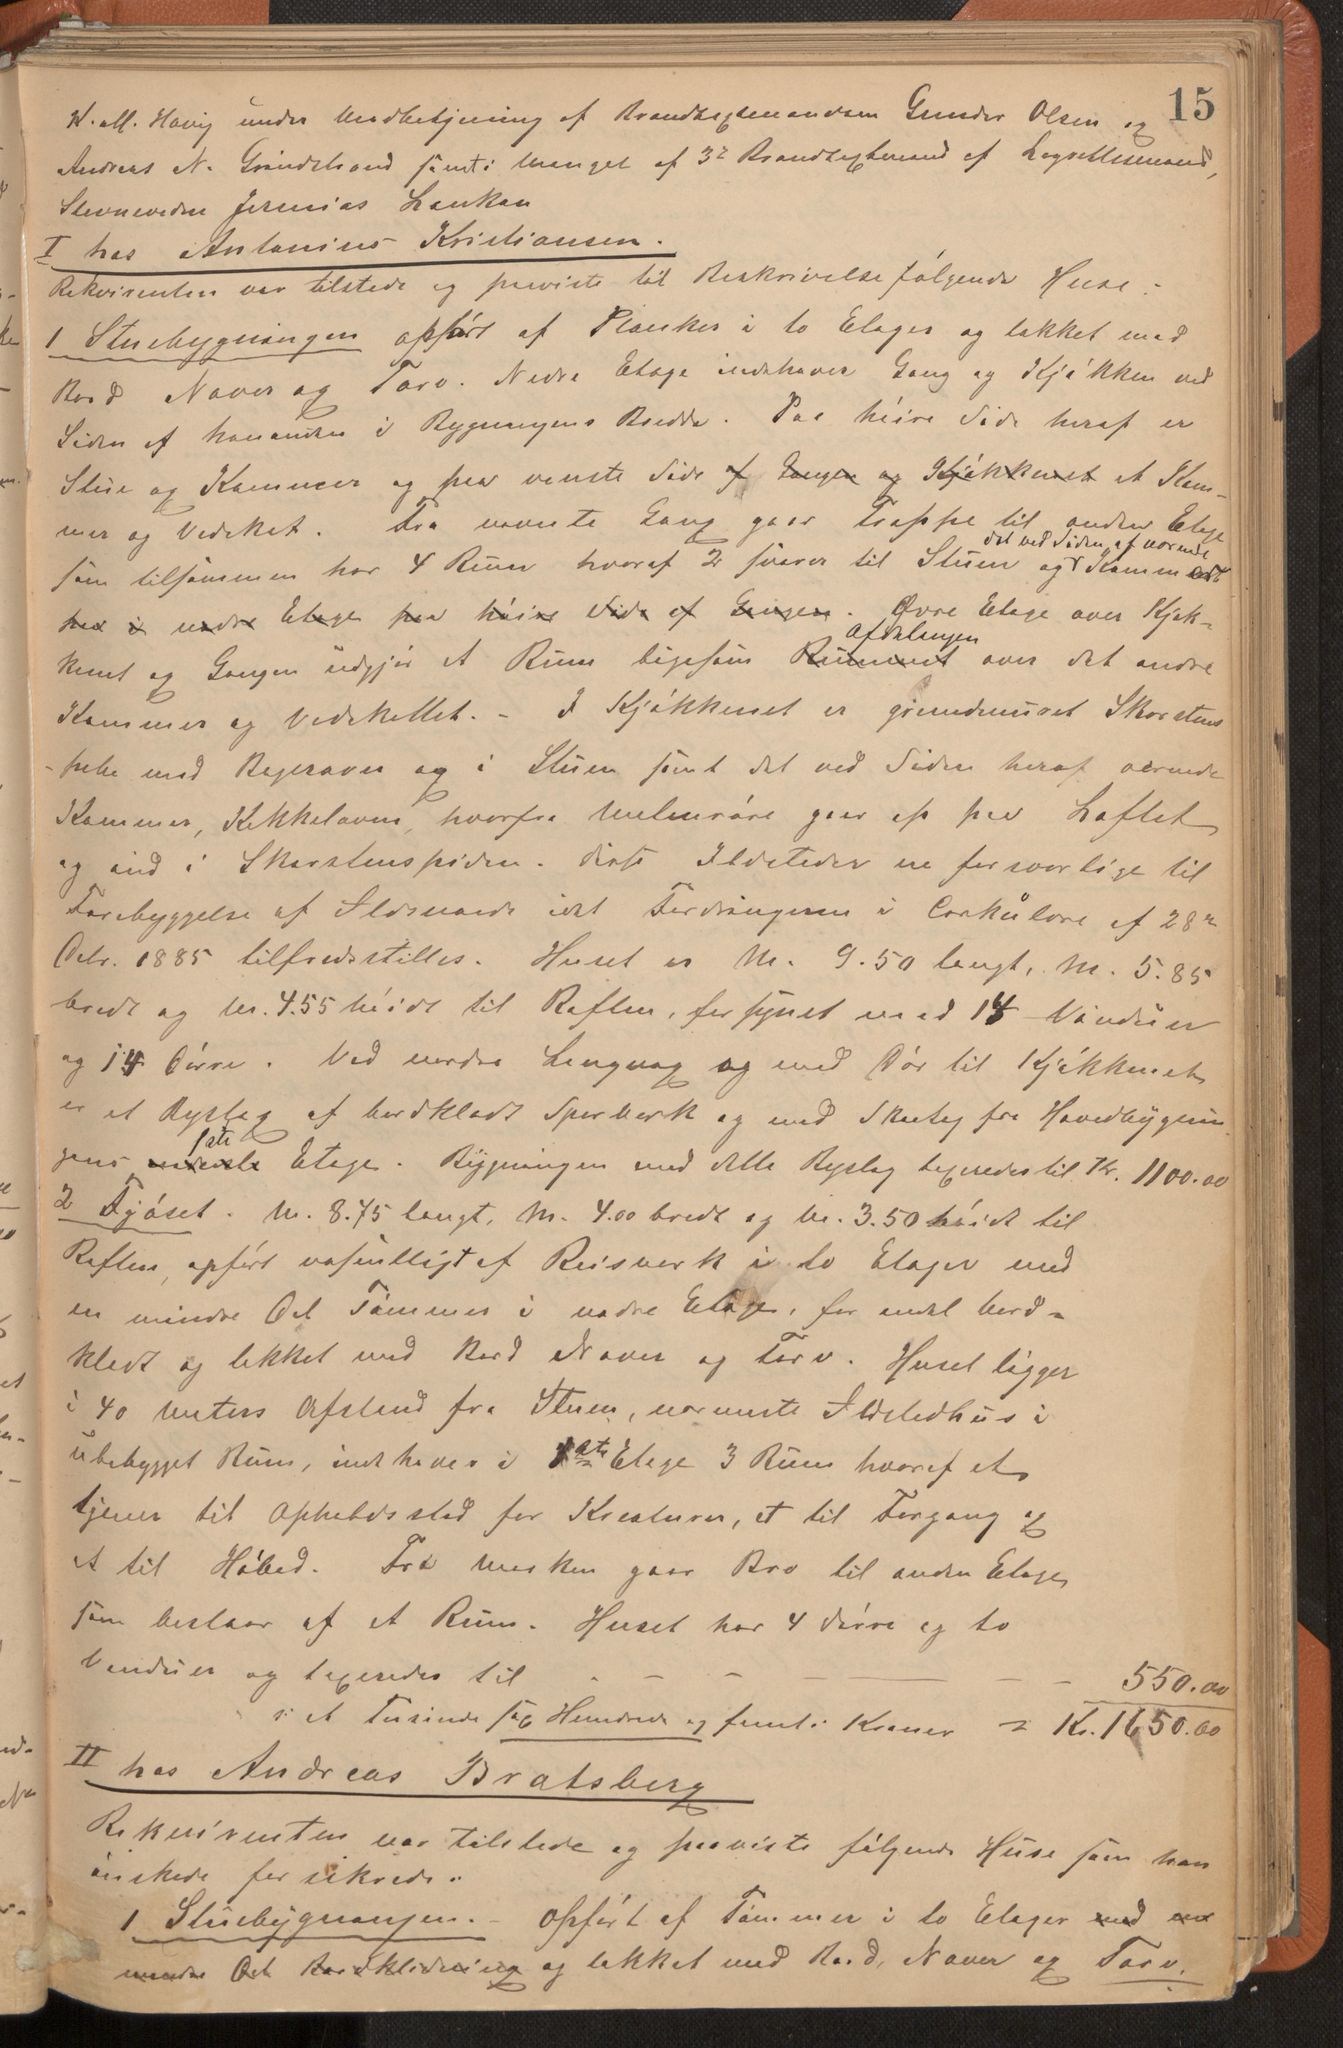 15
K. M. Havig under Medbetjening af Brandtaxtmændene Gunder Olsen og
Andreas N. Grindstrand samt i Mangel af 3die Brandtaxtmand af Lagrettesmand,
Stevnevidne Jeremias Lankan
I hos Antonius Kristiansen.
Rekvirenten var tilstede og paaviste til Beskrivelse følgende Huse:
1 Stuebygningen opført af Planker i to Etager og tækket med
Bord Næver og Torv. Nedre Etage indehaver Gang og Kjøkken ved
Siden af hinanden i Bygningens Bredde. Paa høire Side heraf er
Stue og Kammer og paa venste Side af Gangen og Kjøkkenet et Kam-
mer og Vedskot. Fra nævnte Gang gaar Trappe til anden Etage
det ved Siden af værende
som tilsammen har 4 Rum hvoraf 2 svarer til Stuen og Kammeret
her i nedre Etage paa høire Side af Gangen. Øvre Etage over Kjøk-
Afdelingen
kenet og Gangen udgjør et Rum ligesom Rummet over det andre
Kammer og Vedskottet. - I Kjøkkenet er grundmuret Skorstens
-pibe med Bagerovn og i Stuen samt det ved Siden heraf værende
Kammer, Kakkelovne, hvorfra Melemrøre gaar op paa Loftet
og ind i Skorstenspiben. Disse Ildsteder er forsvarlige til
Forebyggelse af Ildsvaade idet Fordringerne i Cirkulære af 28de
Octr. 1885 tilfredsstilles. Huset er M. 9.50 langt, M. 5.85
bredt og M. 4.55 høidt til Raften, forsynet med 14 Vinduer
og 14 Dørre. Ved nordre Langvæg og med Dør til Kjøkkenet
er et Byslag af bordklædt Sperverk og med Skraatag fra Hovedbygnin
1ste
gens nederste Etage. Bygningen med dette Byslag taxeredes til Kr. 1100.00
2 Fjøset. M. 8.75 langt, M. 4.00 bredt og M. 3.50 høidt til
Raften, opført væsentligt af Reisverk i to Etager med
en mindre Del Tømmer i nedre Etage, for endel bord-
klædt og tækket med Bord Næver og Torv. Huset ligger
i 40 Meters Afstand fra Stuen, nærmeste Ildstedhus i
ubebygget Rum, indehaver i 1ste Etage 3 Rum hvoraf et
tjener til Opholdssted for Kreaturer, et til Forgang og
et til Høbod. Fra Marken gaar Bro til anden Etage
som bestaar af et Rum. Huset har 4 Dørre og to
Vinduer og taxeredes til - - - - - 550.00
si et Tusinde sex Hundrede og femti Kroner = Kr. 1650.00
II hos Andreas Bratsberg
Rekvirenten var tilstede og paaviste følgende Huse som han
ønskede forsikrede.
1 Stuebygningen. - Opført af Tømmer i to Etager med en
mindre Del Bordklædning og tækket med Bord, Næver og Torv.